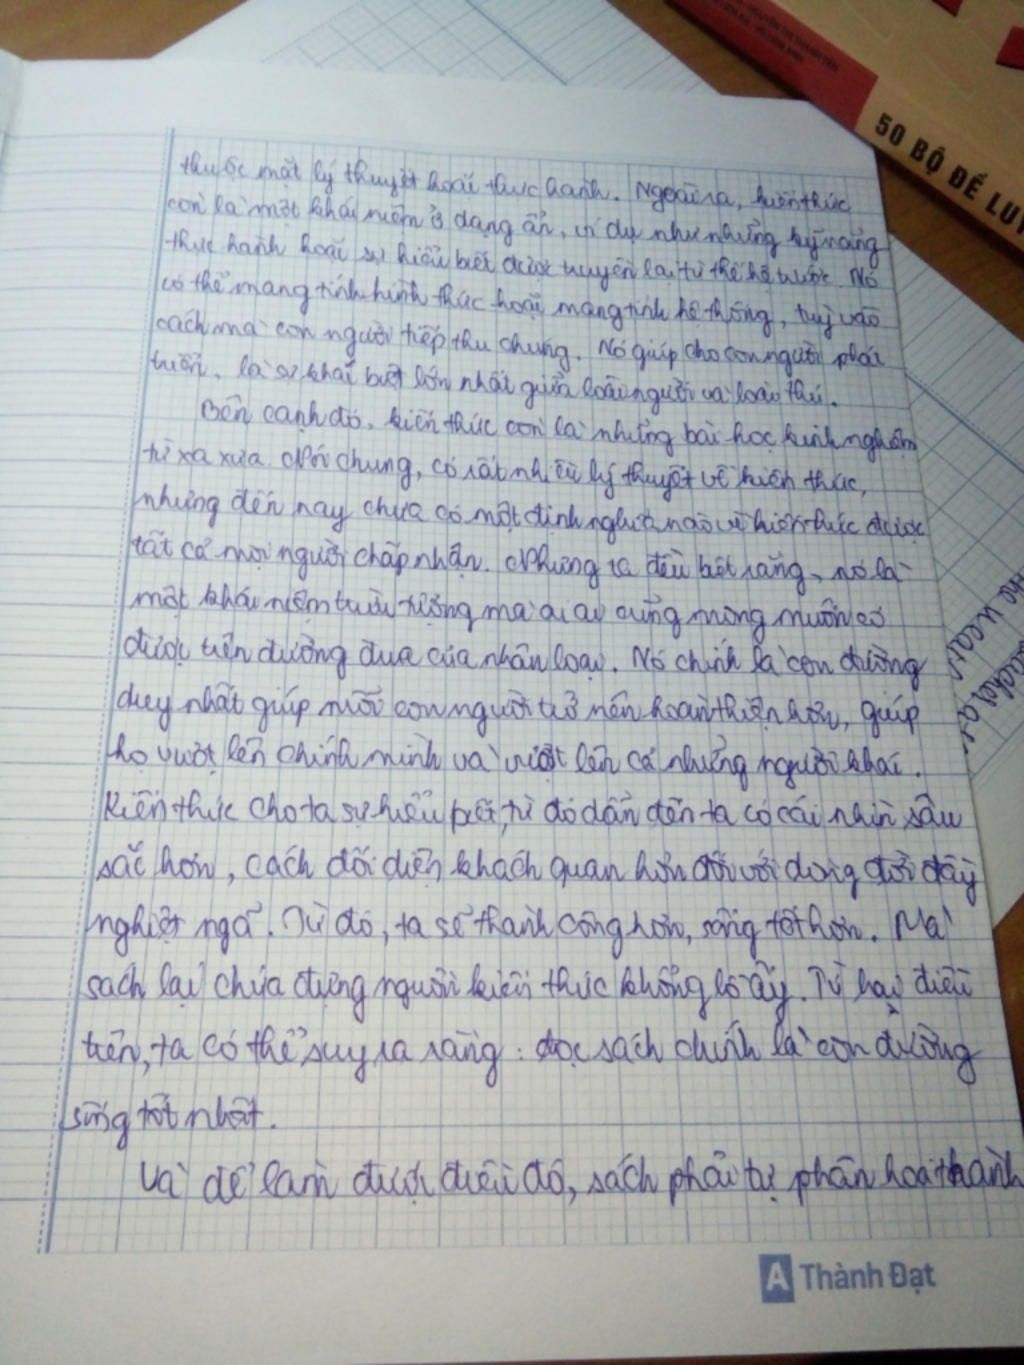 50 BỘ ĐỀ LUY
thuộc mặt lý thuyết hoặc thực hành. Ngoài ra, kiến thức
còn là một khái niệm ở dạng ẩn, ví dụ như những kỹ năng
thực hành hoặc sự hiểu biết được truyền lại từ thế hệ trước. Nó
có thể mang tính hình thức hoặc mang tính hệ thống, tuỳ vào
cách mà con người tiếp thu chúng. Nó giúp cho con người phát
triển, là sự khác biệt lớn nhất giữa loài người và loài thú.
Bên cạnh đó, kiến thức còn là những bài học kinh nghiệm
từ xa xưa. Nói chung, có rất nhiều lý thuyết về kiến thức,
nhưng đến nay chưa có một định nghĩa nào về kiến thức được
tất cả mọi người chấp nhận. Nhưng ta đều biết rằng, nó là
một khái niệm trừu tượng mà ai ai cũng mong muốn có
được trên đường đua của nhân loại. Nó chính là con đường
duy nhất giúp mỗi con người trở nên hoàn thiện hơn, giúp
họ vượt lên chính mình và vượt lên cả những người khác.
Kiến thức cho ta sự hiểu biết, từ đó dẫn đến ta có cái nhìn sâu
sắc hơn, cách đối diện khách quan hơn đối với dòng đời đầy
nghiệt ngã. Từ đó, ta sẽ thành công hơn, sống tốt hơn. Mà
sách lại chứa đựng nguồn kiến thức khổng lồ ấy. Từ hai điều
trên, ta có thể suy ra rằng: đọc sách chính là con đường
sống tốt nhất.
Và để làm được điều đó, sách phải tự phân hoá thành
A Thành Đạt